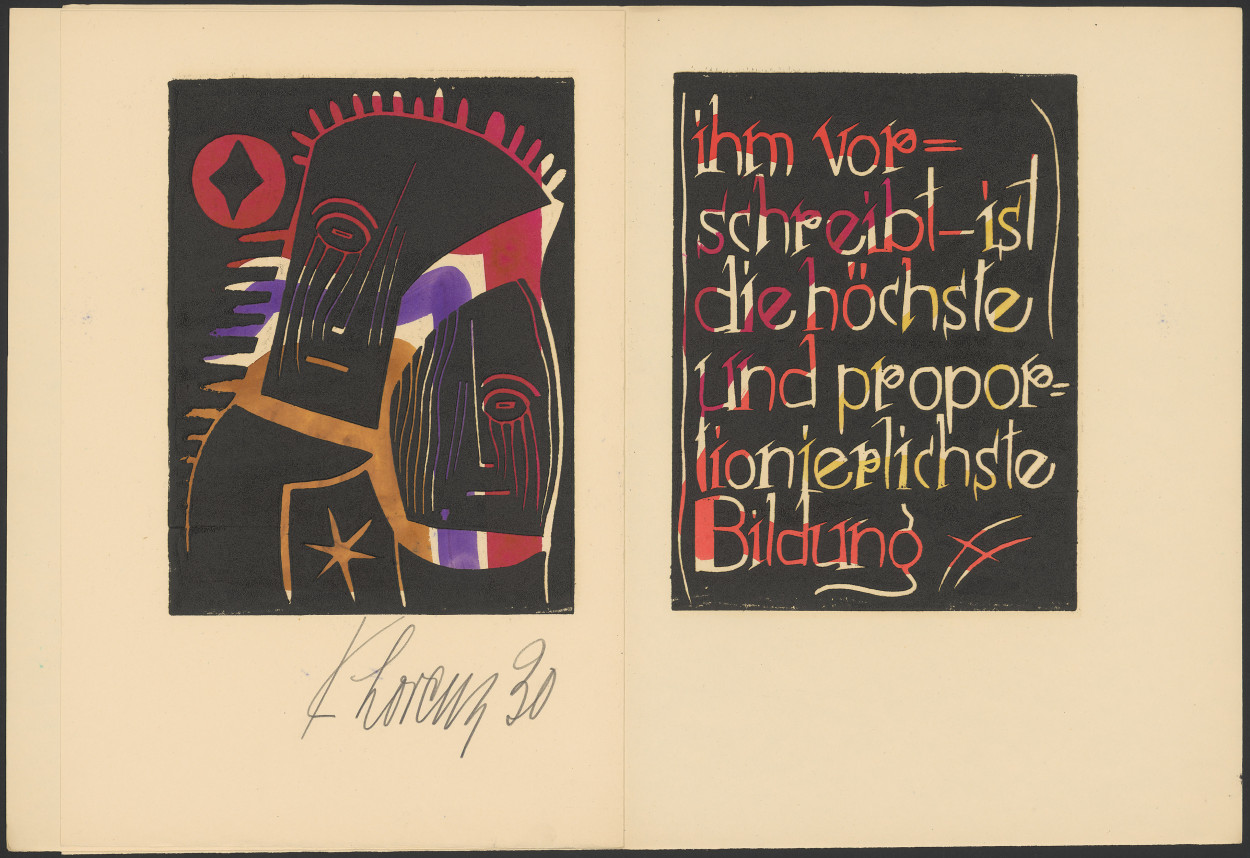 K Lorenz 30
ihm vor=
schreibt—ist
die höchste
und propor=
tionierlichste
Bildung